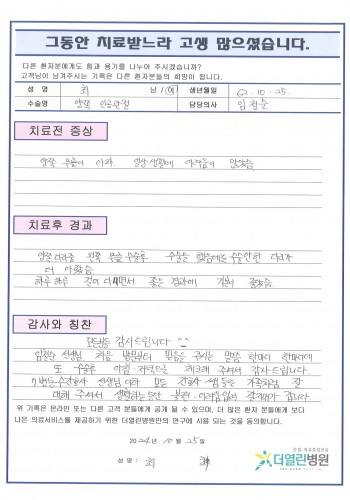 그동안 치료받느라 고생 많으셨습니다.
다른 환자분에게도 힘과 용기를 나누어 주시겠습니까?
고객님이 남겨주시는 기록은 다른 환자분들의 희망이 됩니다.
성 명 최 남/여 생년월일 62-10-25.
수술명 양쪽 인공관절 담당의사 임철순
치료전 증상
양쪽 무릎이 아파 일상생활에 어려움이 많았음
치료후 경과
양쪽 다리중 왼쪽 무릎 수술후 수술을 했음에도 수술안한 다리가
더 아팠음.
하루 하루 걷이 다니면서 좋은 경과에 기분이 좋았음.
감사와 칭찬
모든분들 감사드립니다 ^^
임철순 선생님. 처음 방문부터 믿음을 주시는 말씀 한마디 한마디에
또 수술후 체크해 주셔서 감사드립니다.
7병동 수간호사 선생님 이하 모든 간호사쌤들을 가족처럼 잘
대해 주셔서 생활하는동안 불편·어려움없이 잘지내다 갑니다.
위 기록은 온라인 또는 다른 고객 분들에게 공개 될 수 있으며, 더 많은 환자 분들에게 보다
나은 의료서비스를 제공하기 위한 더열린병원만의 연구에 사용 되는 것을 동의합니다.
2024년 10월 25일
성 명 : 최
더열린병원